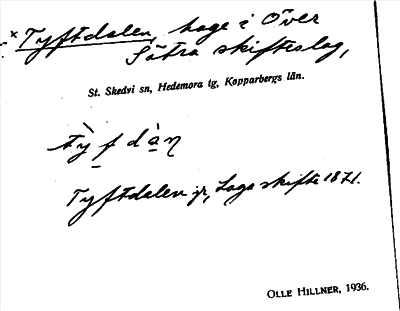 × Tyftdalen, hage i Över
Sätra skifteslag,
St. Skedvi sn, Hedemora tg, Kopparbergs län.
tỳf dàn
Tyftdalen jr, Laga skifte 1871.
OLLE HILLNER, 1936.